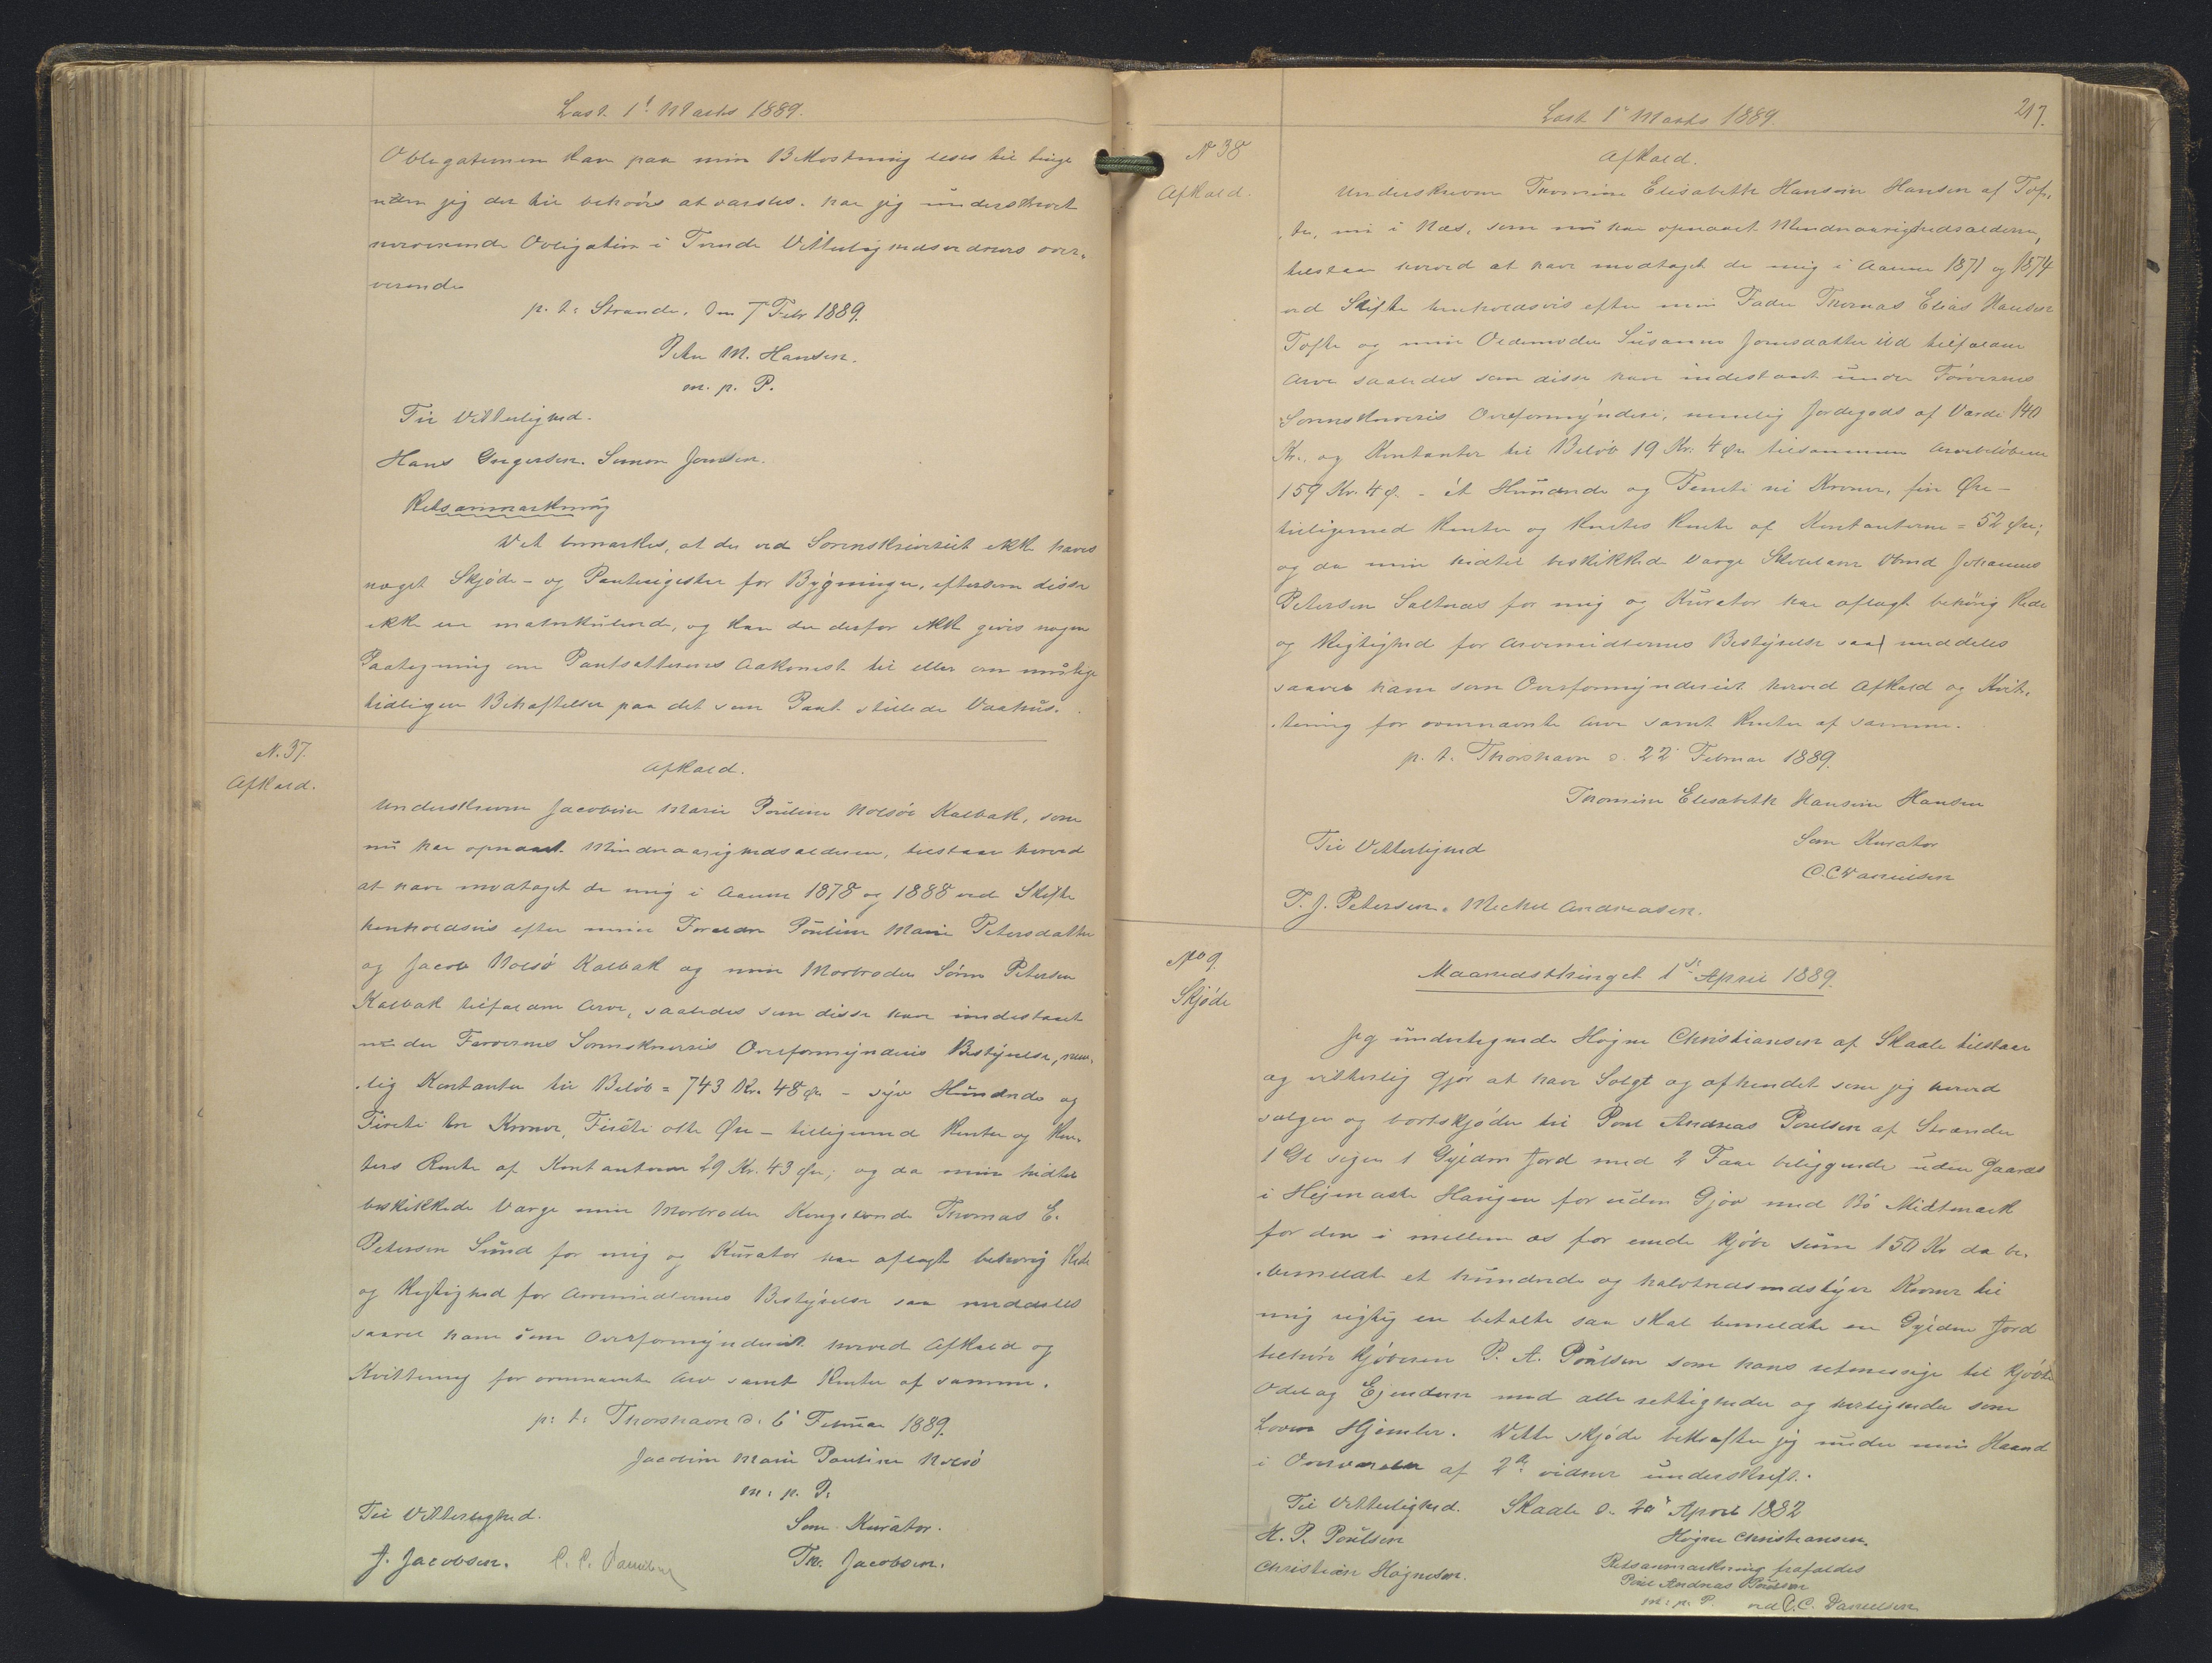 Læst 1ste Marts 1889.
Obligationen kan paa min Bekostning læses til tinge
uden jeg der til behøves at varsles. har jeg underskrevet
nærværende Obligation i Tvende Vitterlighedsvidners over-
værende
p. t. Strænder, den 7 Febr 1889.
Peter M. Hansen.
m. p. P.
Til Vitterlighed.
Hans Gregersen. Simon Joensen.
Retsanmærkning
Det bemærkes, at der ved Sorenskriveriet ikke haves
noget Skjøde- og Panteregister for Bygninger, eftersom disse
ikke ere matrikulerede, og kan der derfor ikke gives nogen
Paategning om Pantsætterens Adkomst til eller om mulige
tidligere Behæftelser paa det som Pant stillede Vaahus.
N. 37.
Afkald.
Afkald.
Underskrevne Jacobine Marie Pouline Nolsøe Kalbak, som
nu har opnaaet Mindreaarighedsalderen, tilstaar herved
at have modtaget de mig i Aarene 1878 og 1888 ved Skifte
henholdsvis efter mine Forældre Pouline Marie Petersdatter
og Jacob Nolsø Kalbak og min Morbroder Sørin Petersen
Kalbak tilfaldne Arve, saaledes som disse have indestaaet
under Færøernes Sorenskriveris Overformynderis Bestyrelse, nem-
lig Kontanter til Beløb = 743 Kr. 48 Ør. - syv Hundrede og
Fireti tre Kroner, Fireti otte Øre - tilligemed Renter og Ren-
ters Rente af Kontanterne 29 Kr. 43 Øre; og da min hidtil
beskikkede Værge min Morbroder Kongsbonde Thomas E.
Petersen Sund for mig og Kurator har aflagt behørig Rede
og Rigtighed for Arvemidlernes Bestyrelse saa meddeles
saavel ham som Overformynderiet herved Afkald og
Kvittering for ovennævnte Arv samt Renter af samme.
p. t. Thorshavn d. 6' Februar 1889.
Jacobine Marie Pouline Nolsø
m. p. P.
Til Vitterlighed.
Som Kurator.
J. Jacobsen. C. C. Danielsen
Th. Jacobsen.
Læst 1ste Marts 1889.
217.
N 38
Afkald.
Afkald.
Underskrevne Thomine Elisabeth Hansine Hansen af Tof-
te, nu i Næs, som nu har opnaaet Mindreaarighedsalderen,
tilstaar herved at have modtaget de mig i Aarene 1871 og 1874
ved Skifte henholdsvis efter min Fader Thomas Elias Hansen
Tofte og min Oldemoder Susanne Joensdatter ibd tilfaldne
Arve saaledes som disse have indestaaet under Færøernes
Sorenskriveris Overformynderi, nemlig Jordegods af Værdi 140
Kr., og Kontanter til Beløb 19 Kr. 4 Øre tilsammen Arvebeløbene
159 Kr. 4 Ø. - ét Hundrede og Femti ni Kroner, fire Øre -
tilligemed Renter og Renters Rente af Kontanterne = 52 Øre;
og da min hidtil beskikkede Værge Skolelærer Johannes
Petersen Saltnæs for mig og Kurator har aflagt behørig Rede
og Rigtighed for Arvemidlernes Bestyrelse saa meddeles
saavel ham som Overformynderiet herved Afkald og Kvit-
tering for ovennævnte Arve samt Renter af samme.
p. t. Thorshavn d. 22' Februar 1889.
Thomine Elisabeth Hansine Hansen
Til Vitterlighed
Som Kurator
C. C Danielsen
T. J. Petersen. Michel Andreasen.
No 9.
Skjøde
Maanedsthinget 1ste April 1889.
Jeg undertegnede Høgne Christiansen af Skaale tilstaar
og vitterlig gjør at have Solgt og afhendet som jeg herved
sælger og bortskjøder til Poul Andreas Poulsen af Strænder
1 Gl siger 1 Gylden Jord med 2 Faar beliggende uden Gaards
i Hejmaste Haugen for uden Gjov med Bø Midtmark
for den i mellem os for enede kjøbe sum 150 Kr da be-
bemeldte et hundrede og halvtredsindstyve Kroner til
mig rigtig er betalte saa skal bemeldte en Gylden Jord
tilhøre kjøberen P. A. Poulsen som hans retmessige til kjøbte
Odel og Ejendom med alle rettigheder og herligheder som
Loven Hjemler. Dette skjøde bekræfter jeg under min Haand
i Overværelse af 2de vidner underskrift.
Til Vitterlighed. Skaale d. 20' April 1882
H. P. Poulsen
Høgne Christiansen.
Christian Høgnesen.
Retsanmærkning frafaldes
Poul Andreas Poulsen
m. p. P. ved C. C. Danielsen